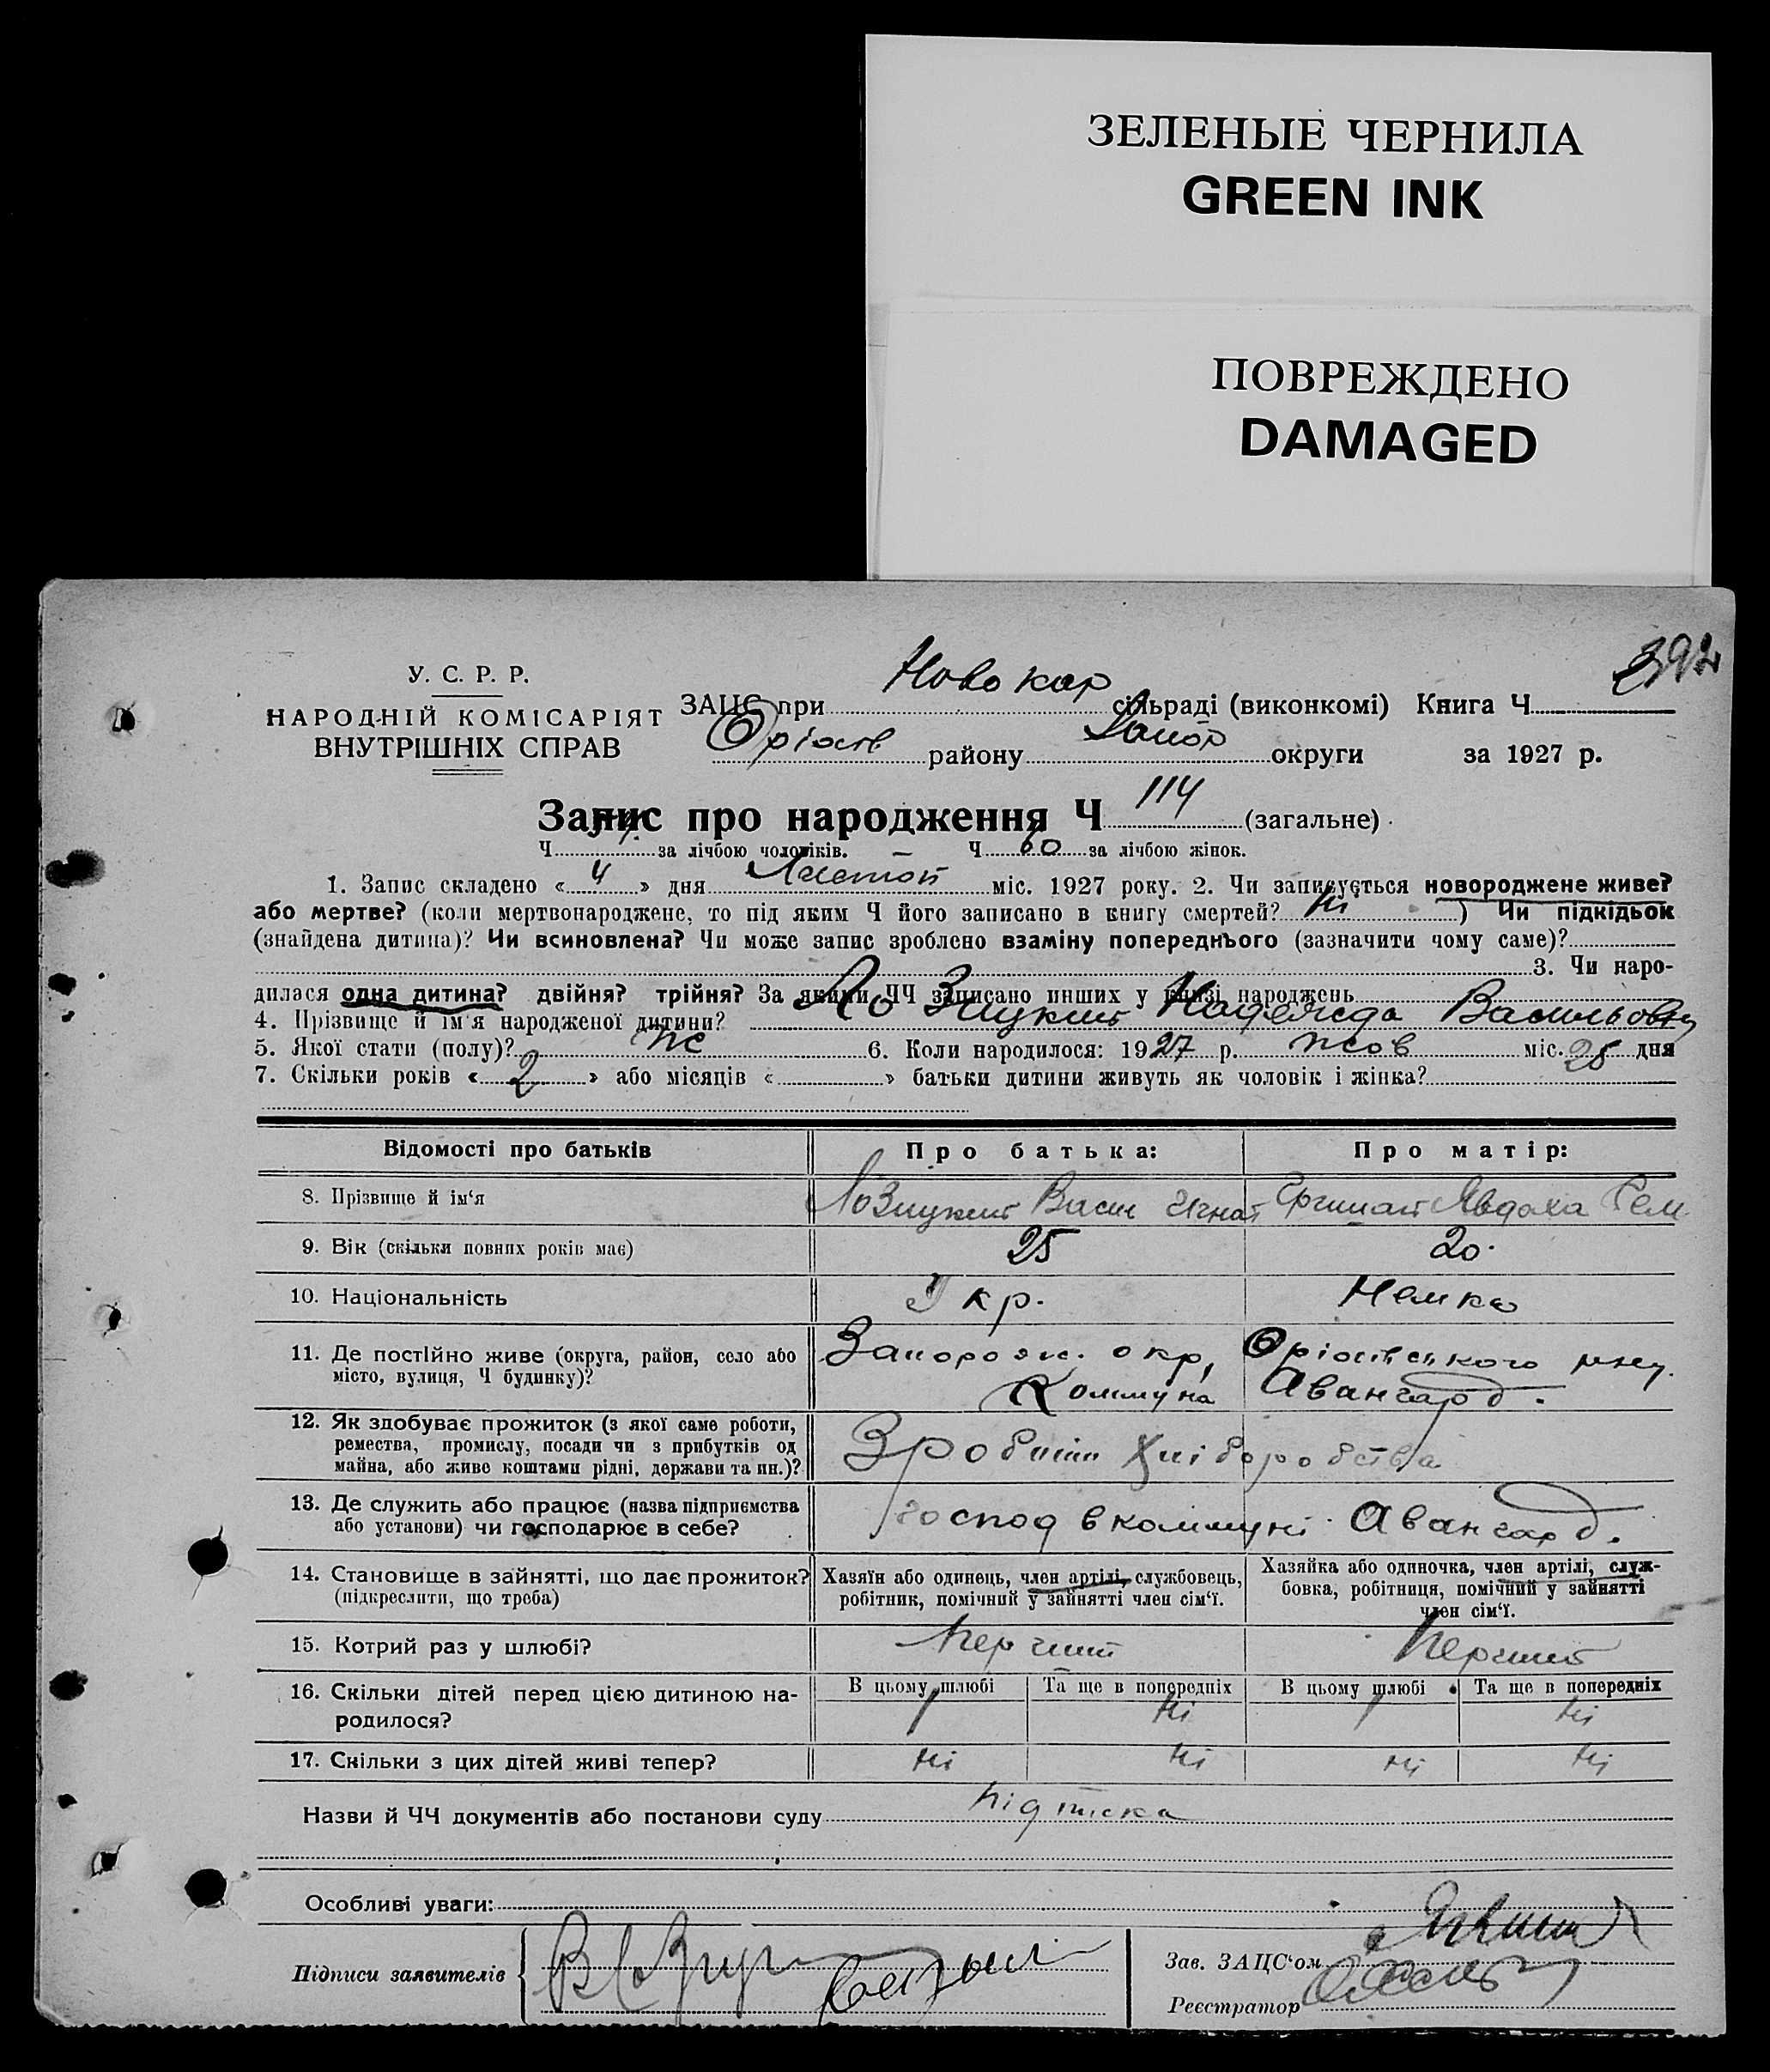 ЗЕЛЕНЫЕ ЧЕРНИЛА
GREEN INK
ПОВРЕЖДЕНО
DAMAGED
392
У. С. Р. Р.
НАРОДНІЙ КОМІСАРІЯТ
ВНУТРІШНІХ СПРАВ
ЗАЦС при Ново кар сільраді (виконкомі) Книга Ч
Оріхів району Запор округи за 1927 р.
Запис про народження Ч 114 (загальне)
Ч за лічбою чоловіків. Ч 60 за лічбою жінок.
1. Запис складено « 4 » дня міс. 1927 року. 2. Чи записується новороджене живе?
або мертве? (коли мертвонароджене, то під яким Ч його записано в книгу смертей? Ні ) Чи підкідьок
(знайдена дитина)? Чи всиновлена? Чи може запис зроблено взаміну попереднього (зазначити чому саме)?
3. Чи наро-
дилася одна дитина? двійня? трійня? За якими ЧЧ записано инших у книзі народжень
4. Прізвище й ім'я народженої дитини? Ло Зицкий Надежда Васильовн
5. Якої стати (полу)? же 6. Коли народилося: 1927 р. жов міс. 25 дня
7. Скільки років « 2 » або місяців « » батьки дитини живуть як чоловік і жінка?
Відомості про батьків
Про батька:
Про матір:
8. Прізвище й ім'я
ЛоЗицкий Васил Игнат
Явдоха
9. Вік (скільки повних років має)
25
20.
10. Національність
Укр.
Немка
11. Де постійно живе (округа, район, село або
місто, вулиця, Ч будинку)?
Запорож. окр, Оріхівського рну.
Коммуна Авангард.
12. Як здобуває прожиток (з якої саме роботи,
ремества, промислу, посади чи з прибутків од
майна, або живе коштами рідні, держави та ин.)?
Зробітки Хліборобства
13. Де служить або працює (назва підприємства
або установи) чи господарює в себе?
господ в коммуні Авангард.
14. Становище в зайнятті, що дає прожиток?
(підкреслити, що треба)
Хазяїн або одинець, член артілі, службовець,
робітник, помічний у зайнятті член сім'ї.
Хазяйка або одиночка, член артілі, служ-
бовка, робітниця, помічний у зайнятті
член сім'ї.
15. Котрий раз у шлюбі?
Перчий
Перший
16. Скільки дітей перед цією дитиною на-
родилося?
В цьому шлюбі
Та ще в попередніх
В цьому шлюбі
Та ще в попередніх
1
Ні
1
Ні
17. Скільки з цих дітей живі тепер?
Ні
Ні
Ні
Ні
Назви й ЧЧ документів або постанови суду підписка
Особливі уваги:
Підписи заявителів
Зав. ЗАЦС'ом
Реєстратор